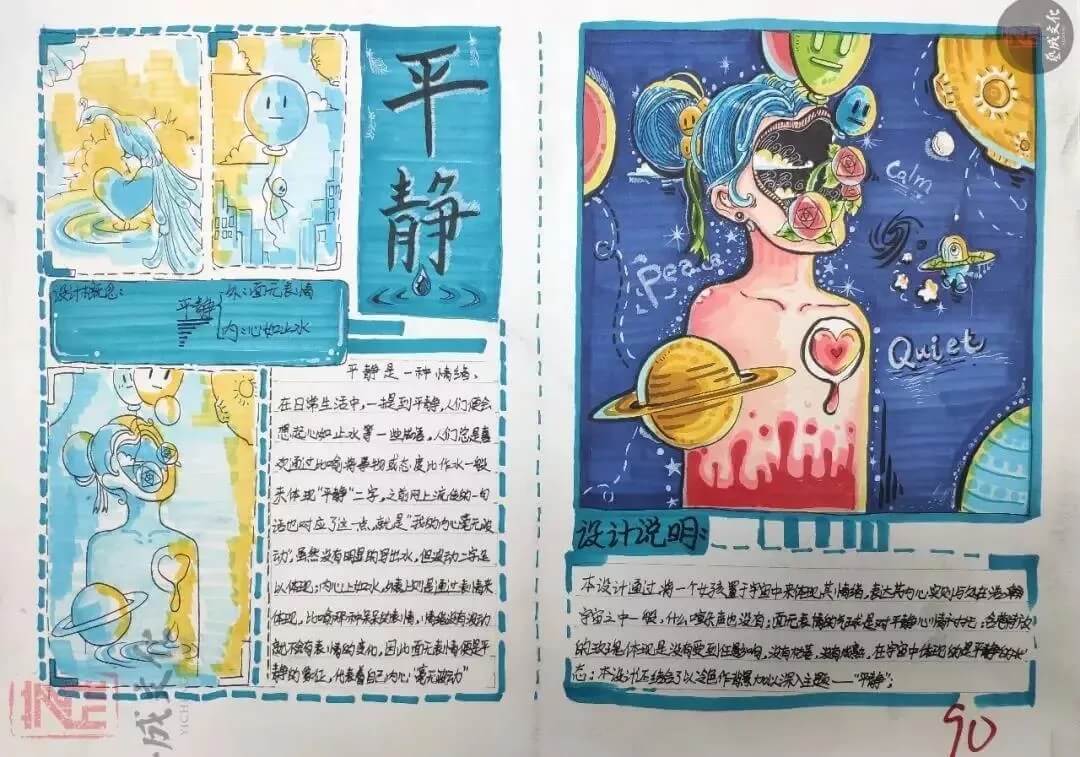 平静
设计构思:
平静
外:面无表情
内:心如止水
平静是一种情绪、
在日常生活中,一提到平静,人们便会
想起心如止水等一些成语。人们总是喜
欢通过比喻将事物或态度比作水一般
来体现"平静"二字,之前网上流传的一句
话也对应了这一点,就是"我的内心毫无波
动",虽然没有明显的写出水,但波动二字足
以体现;内心上如水,外表上则是通过表情来
体现,比喻那种呆呆的表情,情绪没有波动
就不会有表情的变化,因此面无表情便是平
静的象征,代表着自己内心"毫无波动"
Calm
Peace
Quiet
设计说明:
本设计通过将一个女孩置于宇宙中来体现其情绪,表达其内心实则与处在
宇宙之中一般,什么声也没有;面无表情的气球是对平静心情的
的玫瑰体现是没有受到任何影响,没有枯萎,没有,在宇宙中体现的是平静的状
态;本设计还结合了以冷色作背景加以深入主题——"平静";
90
艺成文化
成文化
YICH